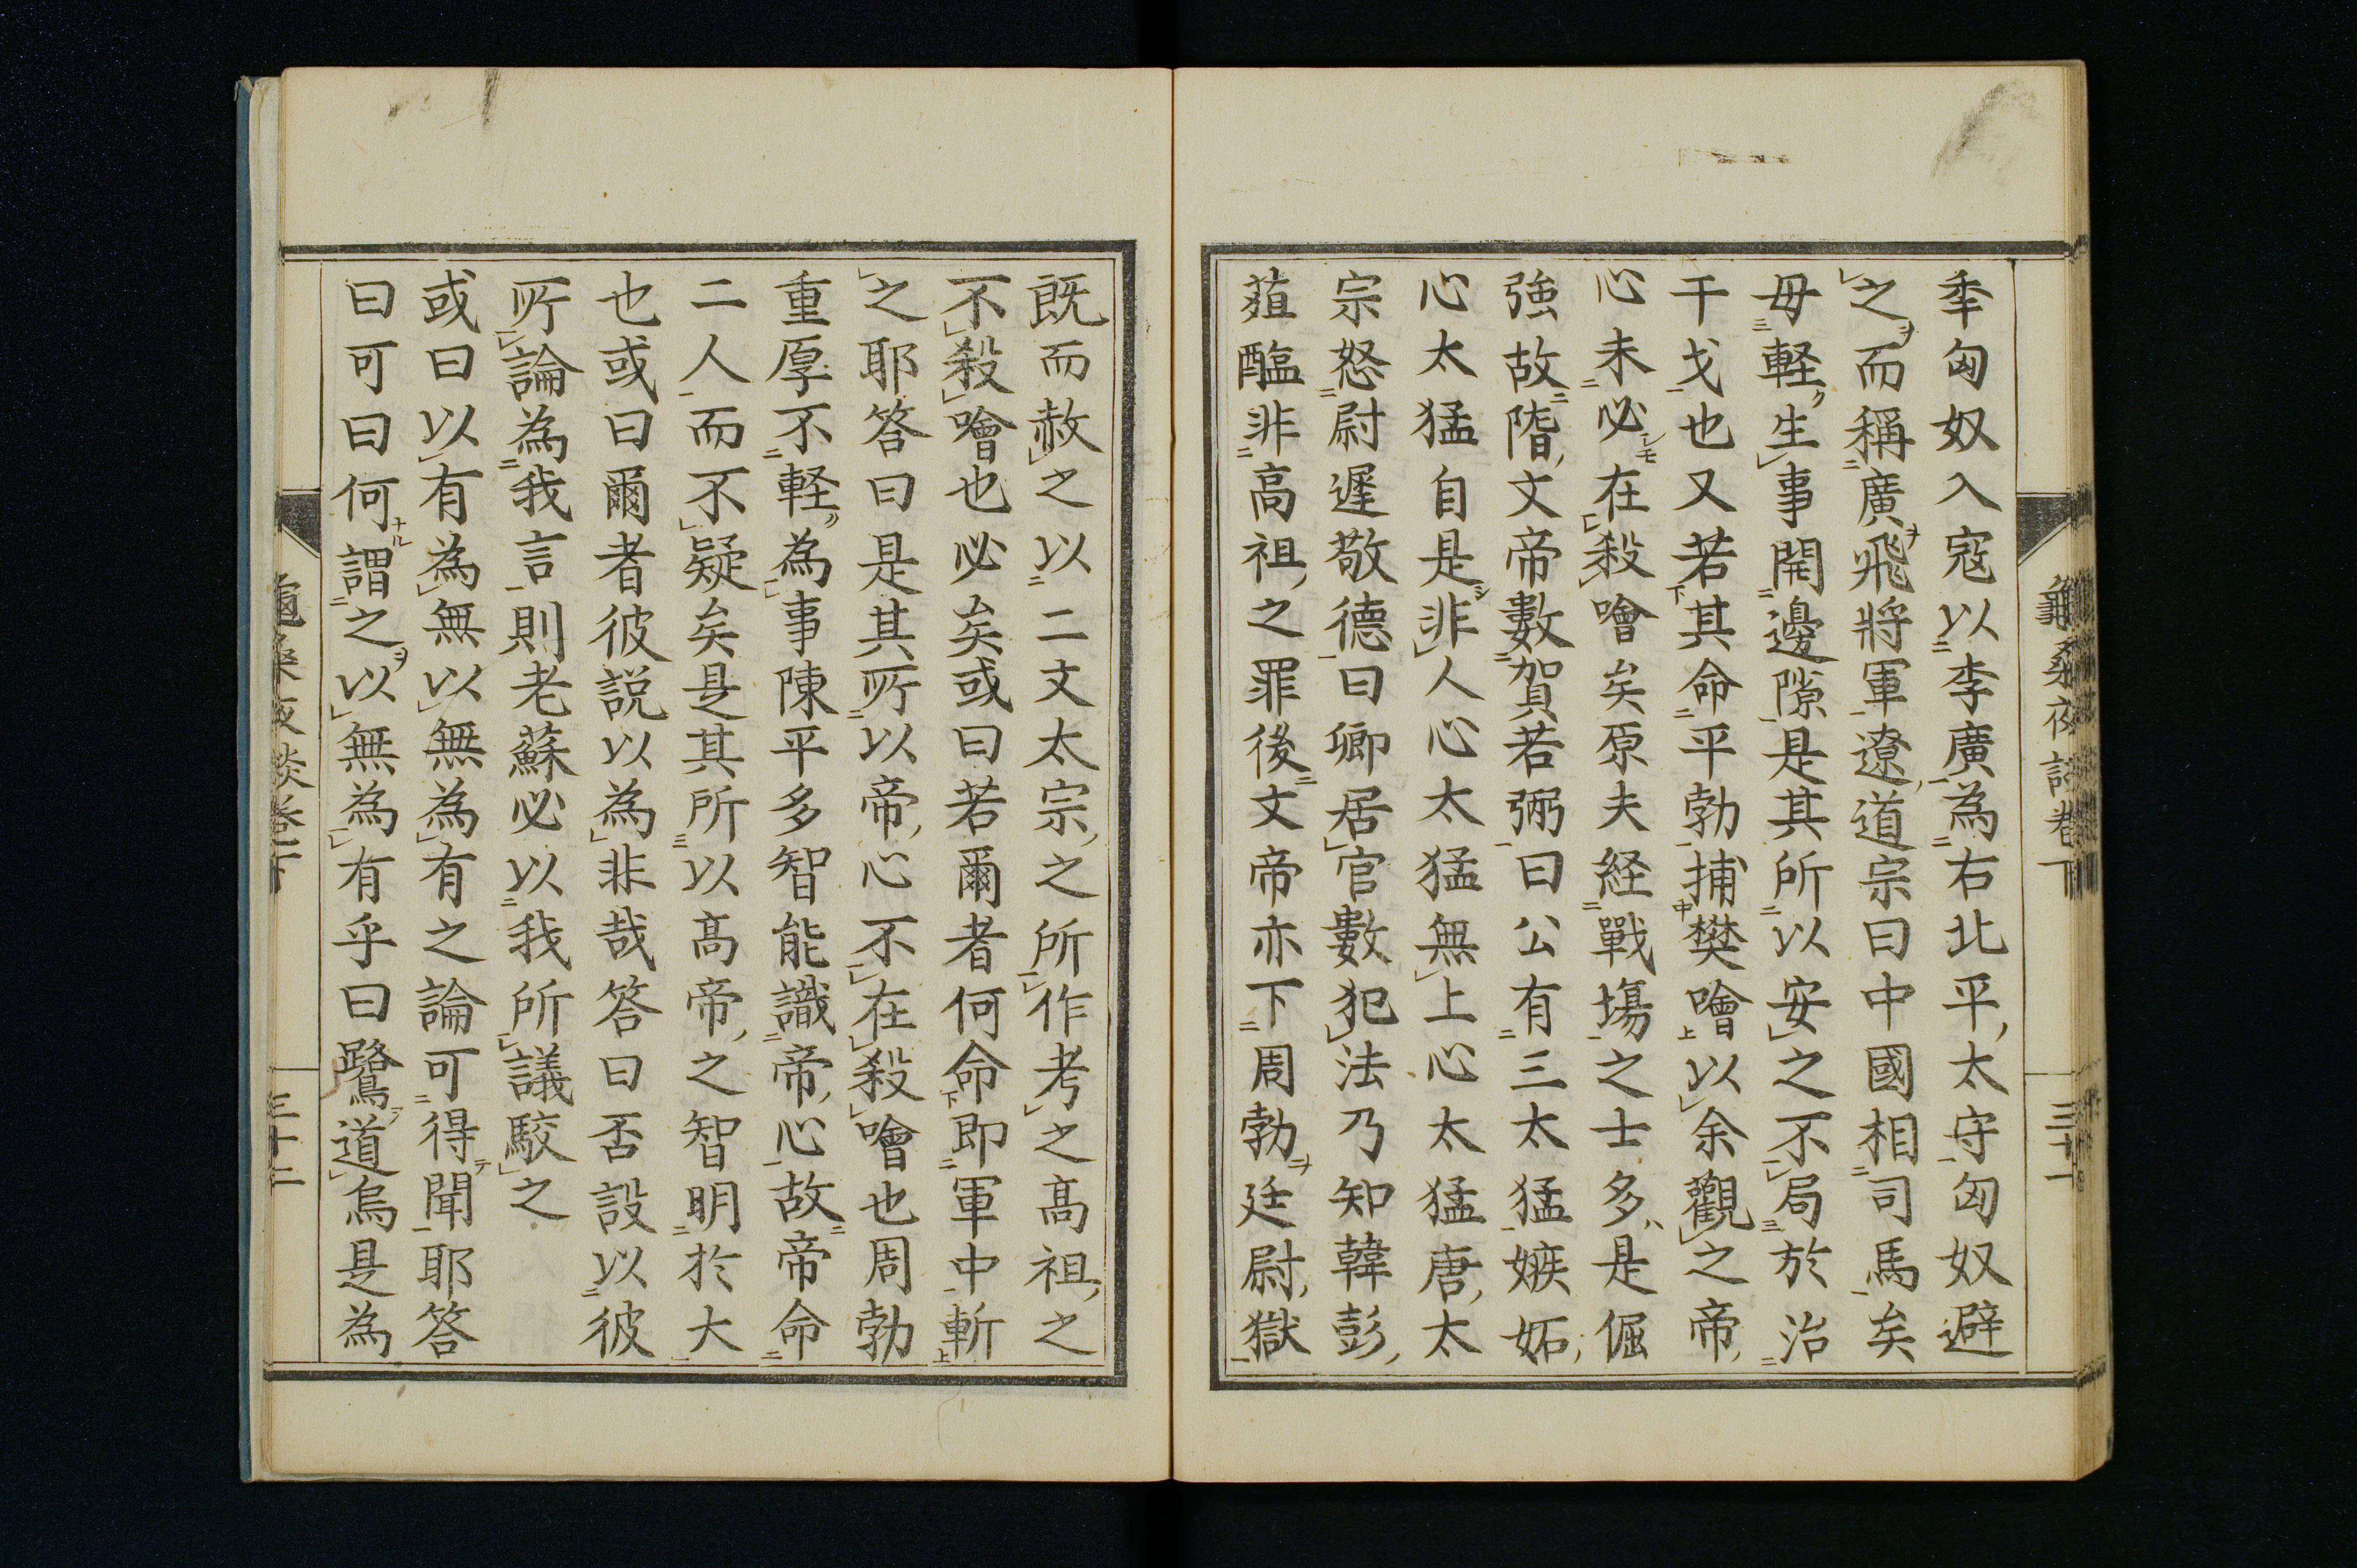 龜桑夜談卷下 三十一
秊匈奴入寇以李廣為右北平太守匈奴避
之而稱廣飛將軍遼道宗曰中國相司馬矣
毋軽生事開邊隙是其所以安之不局於治
干戈也又若其命平勃捕樊噲以余觀之帝
心未必在殺噲矣原夫経戰塲之士多是倔
強故隋文帝數賀若弼曰公有三太猛嫉妬
心太猛自是非人心太猛無上心太猛唐太
宗怒尉遲敬德曰卿居官數犯法乃知韓彭
葅醢非高祖之罪後文帝亦下周勃廷尉獄
既而赦之以二文太宗之所作考之高祖之
不殺噲也必矣或曰若爾者何命即軍中斬
之耶答曰是其所以帝心不在殺噲也周勃
重厚不軽為事陳平多智能識帝心故帝命
二人而不疑矣是其所以高帝之智明於大
也或曰爾者彼説以為非哉答曰否設以彼
所論為我言則老蘇必以我所議駮之
或曰以有為無以無為有之論可得聞耶答
曰可曰何謂之以無為有乎曰鷺道烏是為
龜桑夜談卷下 三十二